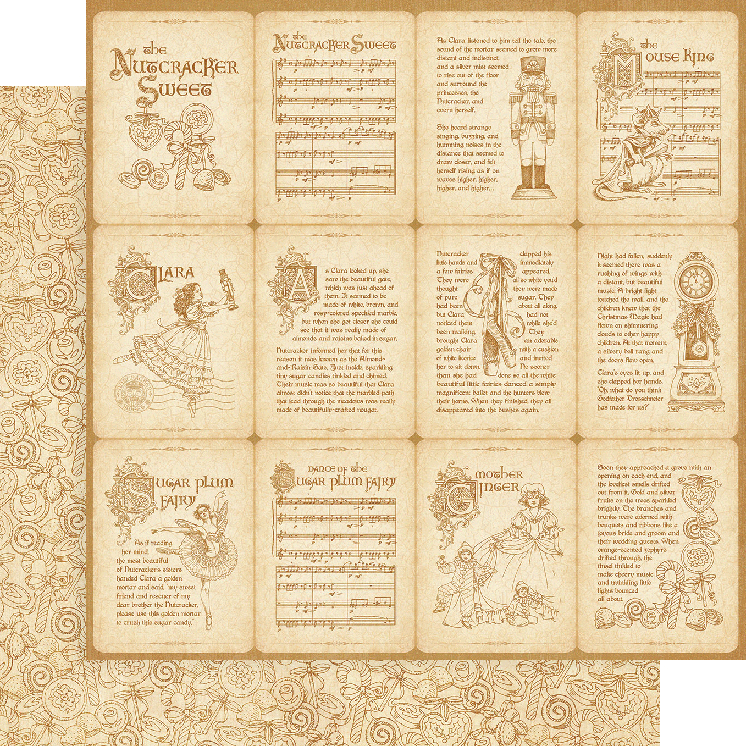 the
NUTCRACKER
SWEET
the
NUTCRACKER SWEET
As Clara listened to him tell the tale, the
sound of the mortar seemed to grow more
distant and indistinct,
and a silver mist seemed
to rise out of the floor
and surround the
princesses, the
Nutcracker, and
even herself.
She heard strange
singing, buzzing, and
humming noises in the
distance that seemed to
draw closer, and felt
herself rising as if on
waves higher, higher,
higher, and higher...
the
MOUSE KING
CLARA
As Clara looked up, she
saw the beautiful gate,
which was just ahead of
them. It seemed to be
made of white, brown, and
rosy-colored speckled marble,
but when she got closer she could
see that it was really made of
almonds and raisins baked in sugar.
Nutcracker informed her that for this
reason it was known as the Almonds
-and-Raisin Gate. Just inside, sparkling,
tiny sugar candies tinkled and chimed.
Their music was so beautiful that Clara
almost didn't notice that the marbled path
that lead through the meadows was really
made of beautifully-crafted nougat.
Nutcracker clapped his
little hands and immediately
a few fairies appeared,
They were all so white you'd
thought they were made
of pure sugar. They
had been about all along,
but Clara had not
noticed them while she'd
been walking. They
brought Clara an adorable
golden chair with a cushion
of white licorice and invited
her to sit down. No sooner
than she had done so, all the white
beautiful little fairies danced a simply
magnificent ballet and the hunters blew
their horns. When they finished they all
disappeared into the bushes again.
Night had fallen, suddenly
it seemed there was a
rushing of wings with
a distant, but beautiful
music. A bright light
touched the wall and the
children knew that the
Christmas Magic had
flown on shimmering
clouds to other happy
children. At that moment,
a silvery bell rang and
the doors flew open.
Clara's eyes lit up, and
she clapped her hands.
"Oh what do you think
Godfather Drosselmeier
has made for us?"
SUGAR PLUM
FAIRY
As if reading
her mind,
the most beautiful
of Nutcracker's sisters
handed Clara a golden
mortar and said, "my sweet
friend and rescuer of my
dear brother the Nutcracker,
please use this golden mortar
to crush this sugar candy."
DANCE of the
SUGAR PLUM FAIRY
MOTHER
GINGER
Soon they approached a grove with an
opening on each end, and
the loveliest smells drifted
out from it. Gold and silver
fruits on the trees sparkled
brightly. The branches and
trunks were adorned with
bouquets and ribbons like a
joyous bride and groom and
their wedding guests. When
orange-scented zephyrs
drifted through, the
tinsel tinkled to
make cheery music
and twinkling little
lights bounced
all about.